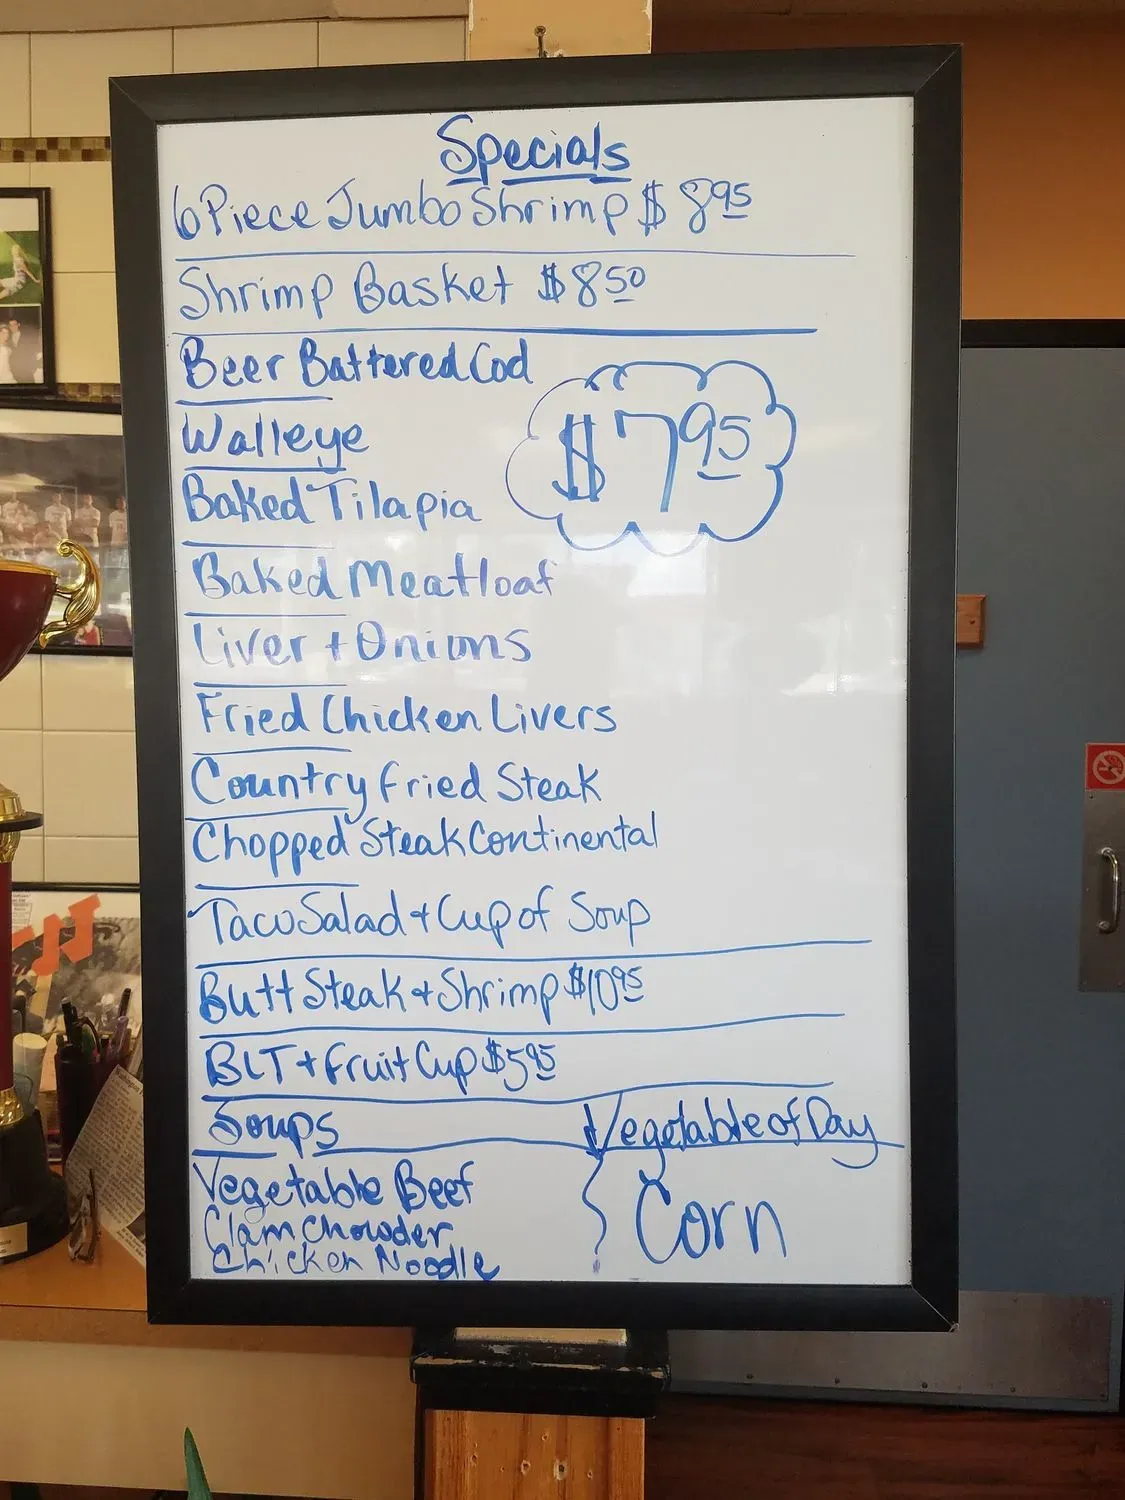 Specials
6 Piece Jumbo Shrimp $8.95
Shrimp Basket $8.50
Beer Battered Cod
$7.95
Walleye
Baked Tilapia
Baked Meatloaf
Liver + Onions
Fried Chicken Livers
Country Fried Steak
Chopped Steak Continental
Taco Salad + Cup of Soup
Butt Steak + Shrimp $10.95
BLT + Fruit Cup $5.95
Soups
Vegetable of Day
Vegetable Beef
Corn
Clam Chowder
Chicken Noodle